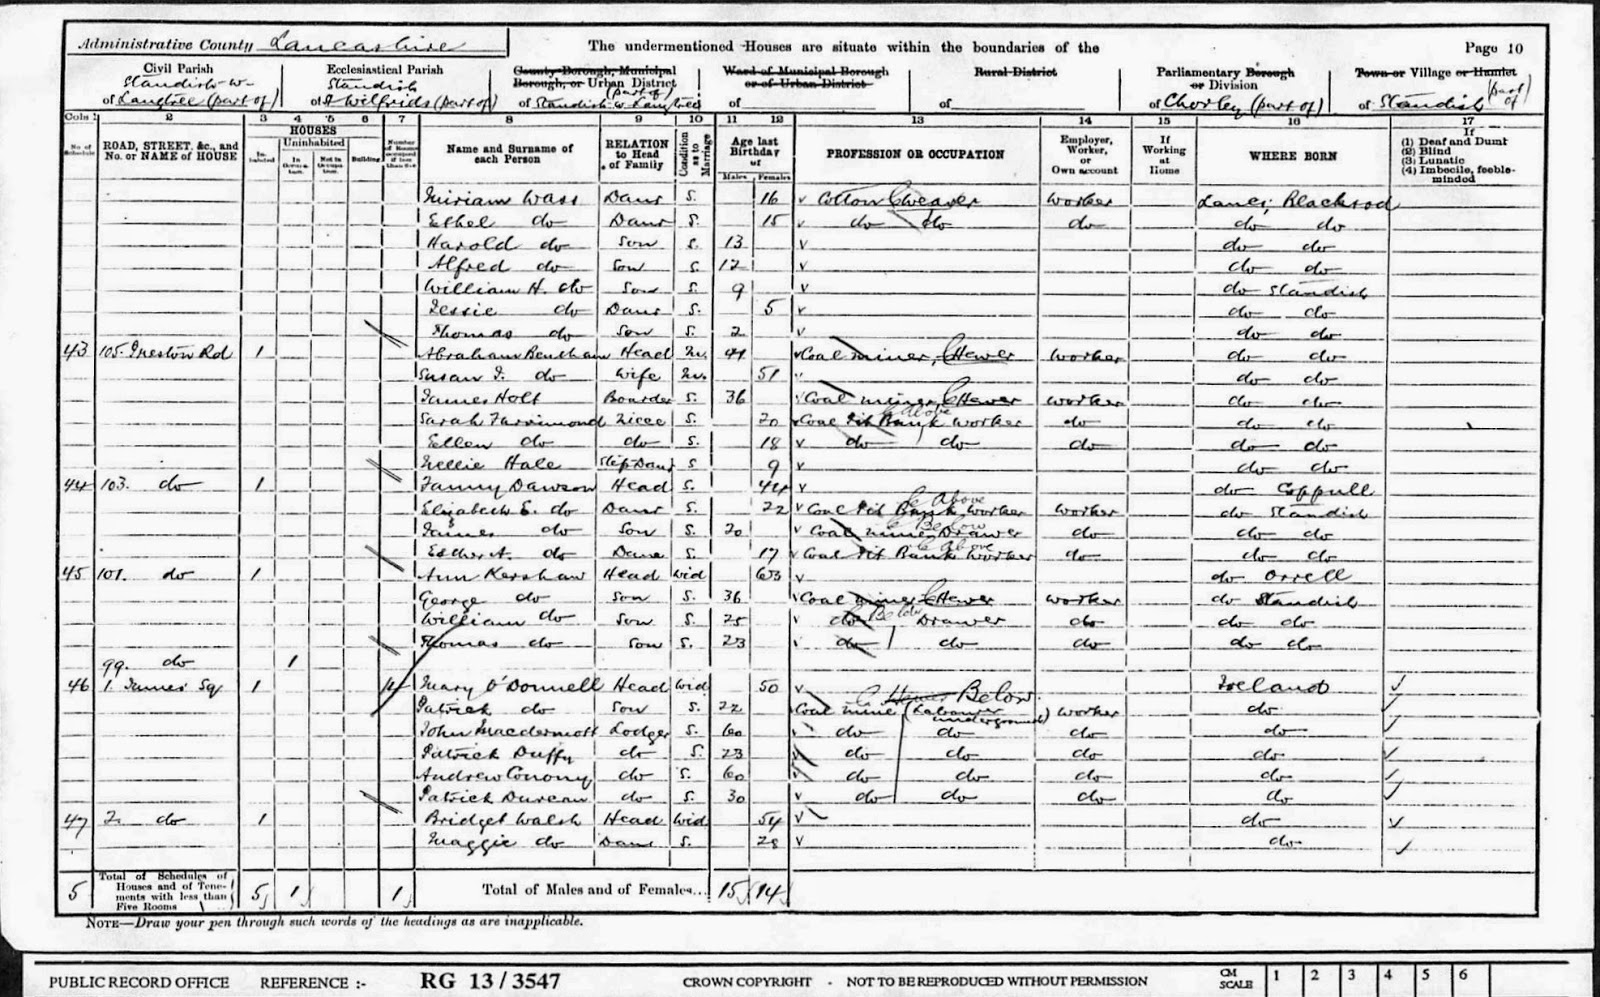 Administrative County Lancashire
The undermentioned Houses are situate within the boundaries of the
Page 10
Civil Parish
Ecclesiastical Parish
County Borough, Municipal
Ward of Municipal Borough
Rural District
Parliamentary Borough
Town or Village or Hamlet
Standish-w-
Standish
Borough, or Urban District
or of Urban District
or Division
(part of)
of Langtree (part of)
of St Wilfrids (part of)
of Standish-w-Langtree
(part of)
of
of
of Chorley (part of)
of Standish
Cols 1 2 3 4 5 6 7 8 9 10 11 12 13 14 15 16 17
No. of Schedule
ROAD, STREET, &c., and No. or NAME of HOUSE
HOUSES
Inhabited
Uninhabited
In Occupation
Not in Occupation
Building
Number of Rooms occupied if less than five
Name and Surname of each Person
RELATION to Head of Family
Condition as to Marriage
Age last Birthday of
Males Females
PROFESSION OR OCCUPATION
Employer, Worker, or Own account
If Working at Home
WHERE BORN
If
(1) Deaf and Dumb
(2) Blind
(3) Lunatic
(4) Imbecile, feeble-minded
Miriam Wass Daur S. 16 Cotton Weaver Worker Lancs; Blackrod
Ethel do Daur S. 15 do do do do do
Harold do Son S. 13 do do
Alfred do Son S. 12 do do
William H. do Son S. 9 do Standish
Jessie do Daur S. 5 do do
Thomas do Son S. 2 do do
43 105. Preston Rd 1 Abraham Bentham Head M. 41 Coal Miner, Hewer Worker do do
Susan J. do Wife M. 51 do do
James Holt Boarder S. 36 Coal Miner, Hewer Worker do do
Sarah Farrimond Niece S. 20 Coal Pit Bank Worker Above do do do
Ellen do do S. 18 do do do do do
Nellie Hale Step Daur S. 9 do do
44 103. do 1 Fanny Dawson Head S. 44 do Coppull
Elizabeth E. do Daur S. 22 Coal Pit Bank Worker Above Worker do Standish
James do Son S. 20 Coal Mine Drawer Below do do do
Esther A. do Daur S. 17 Coal Pit Bank Worker Above do do do
45 101. do 1 Ann Kershaw Head Wid 63 do Orrell
George do Son S. 36 Coal Miner Hewer Worker do Standish
William do Son S. 25 do Below Drawer do do do
Thomas do Son S. 23 do do do do do
99. do 1
46 1. James Sq. 1 4 Mary O'Donnell Head Wid 50 Ireland
Hewer Below
Patrick do Son S. 22 Coal Mine (Labourer underground) Worker do
John Macdermott Lodger S. 60 do do do do
Patrick Duffy do S. 23 do do do do
Andrew Conomy do S. 60 do do do do
Patrick Durcan do S. 30 do do do do
47 2. do 1 Bridget Walsh Head Wid 54 do
Maggie do Daur S. 28 do
5 Total of Schedules of Houses and of Tenements with less than Five Rooms 5 1 1 Total of Males and of Females... 15 14
NOTE—Draw your pen through such words of the headings as are inapplicable.
PUBLIC RECORD OFFICE REFERENCE :- RG 13/3547 CROWN COPYRIGHT - NOT TO BE REPRODUCED WITHOUT PERMISSION CM SCALE 1 2 3 4 5 6